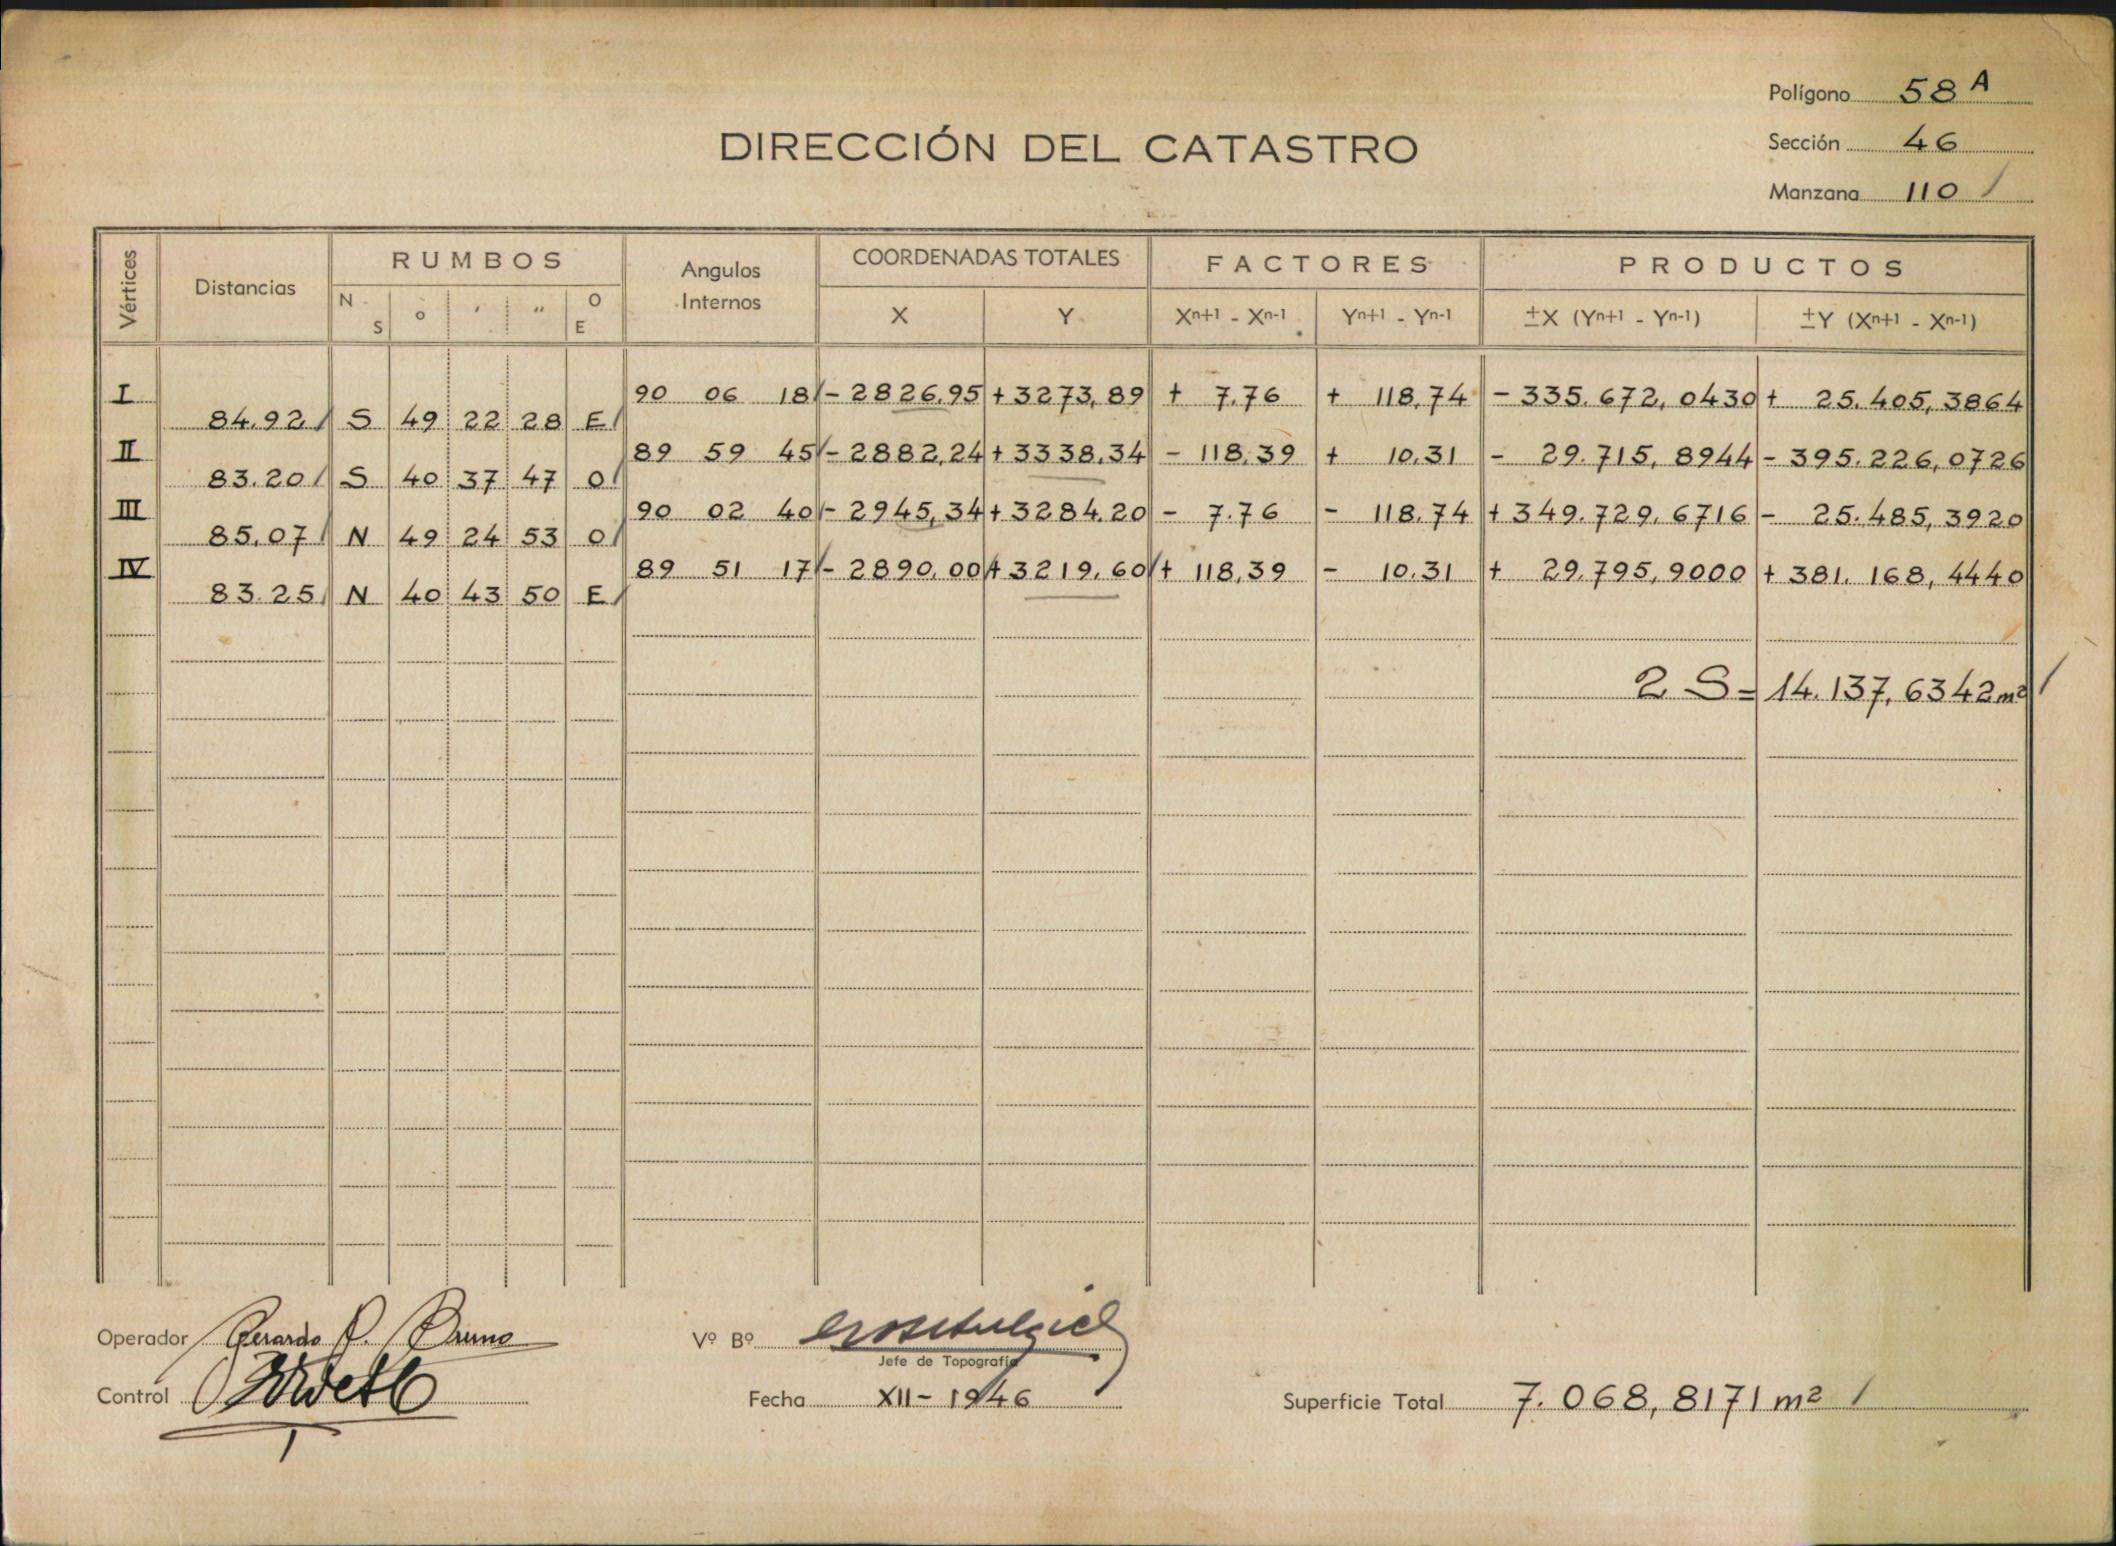 Polígono 58 A
DIRECCIÓN DEL CATASTRO
Sección 46
Manzana 110 /
Vértices Distancias RUMBOS Angulos Internos COORDENADAS TOTALES FACTORES PRODUCTOS
N S o ' " O E X Y Xn+1 - Xn-1 Yn+1 - Yn-1 ±X (Yn+1 - Yn-1) ±Y (Xn+1 - Xn-1)
I 90 06 18 / - 2826,95 + 3273,89 + 7.76 + 118,74 - 335.672,0430 + 25.405,3864
84.92 / S 49 22 28 E /
II 89 59 45 / - 2882,24 + 3338,34 - 118,39 + 10,31 - 29.715,8944 - 395.226,0726
83.20 / S 40 37 47 O /
III 90 02 40 / - 2945,34 + 3284.20 - 7.76 - 118.74 + 349.729,6716 - 25.485,3920
85,07 / N 49 24 53 O /
IV 89 51 17 / - 2890,00 + 3219,60 / + 118,39 - 10,31 + 29.795,9000 + 381.168,4440
83.25 / N 40 43 50 E /
2 S = 14.137,6342 m² /
Operador Gerardo P. Bruno Vº Bº
Jefe de Topografía
Control Fecha XII - 1946 Superficie Total 7.068,8171 m² /